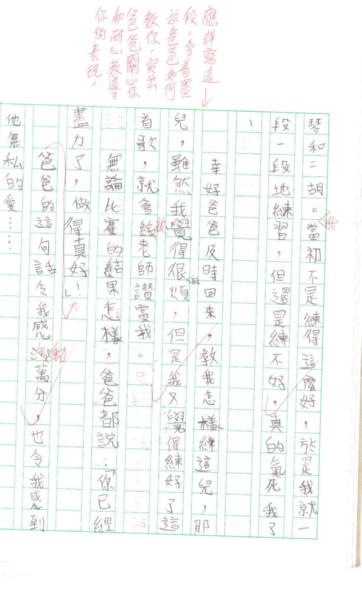 應詳寫這
段，多着墨
於爸爸如何
教你，突出
爸爸關心你
和耐心教導
你的表現。
琴和二胡。當初不是練得這麼好，於是我就一
段一段地練習，但還是練不好，真的氣死我了
！
幸好爸爸及時回來，教我怎樣練這兒，那
兒，雖然我覺得很煩，但是我又覺得練好了這
首歌，就會給老師讚當我。
被
無論比賽的結果怎樣，爸爸都說：「你已經
盡力了，做得真好！」
爸爸的這句話令我感動萬分，也令我感到
他無私的愛……